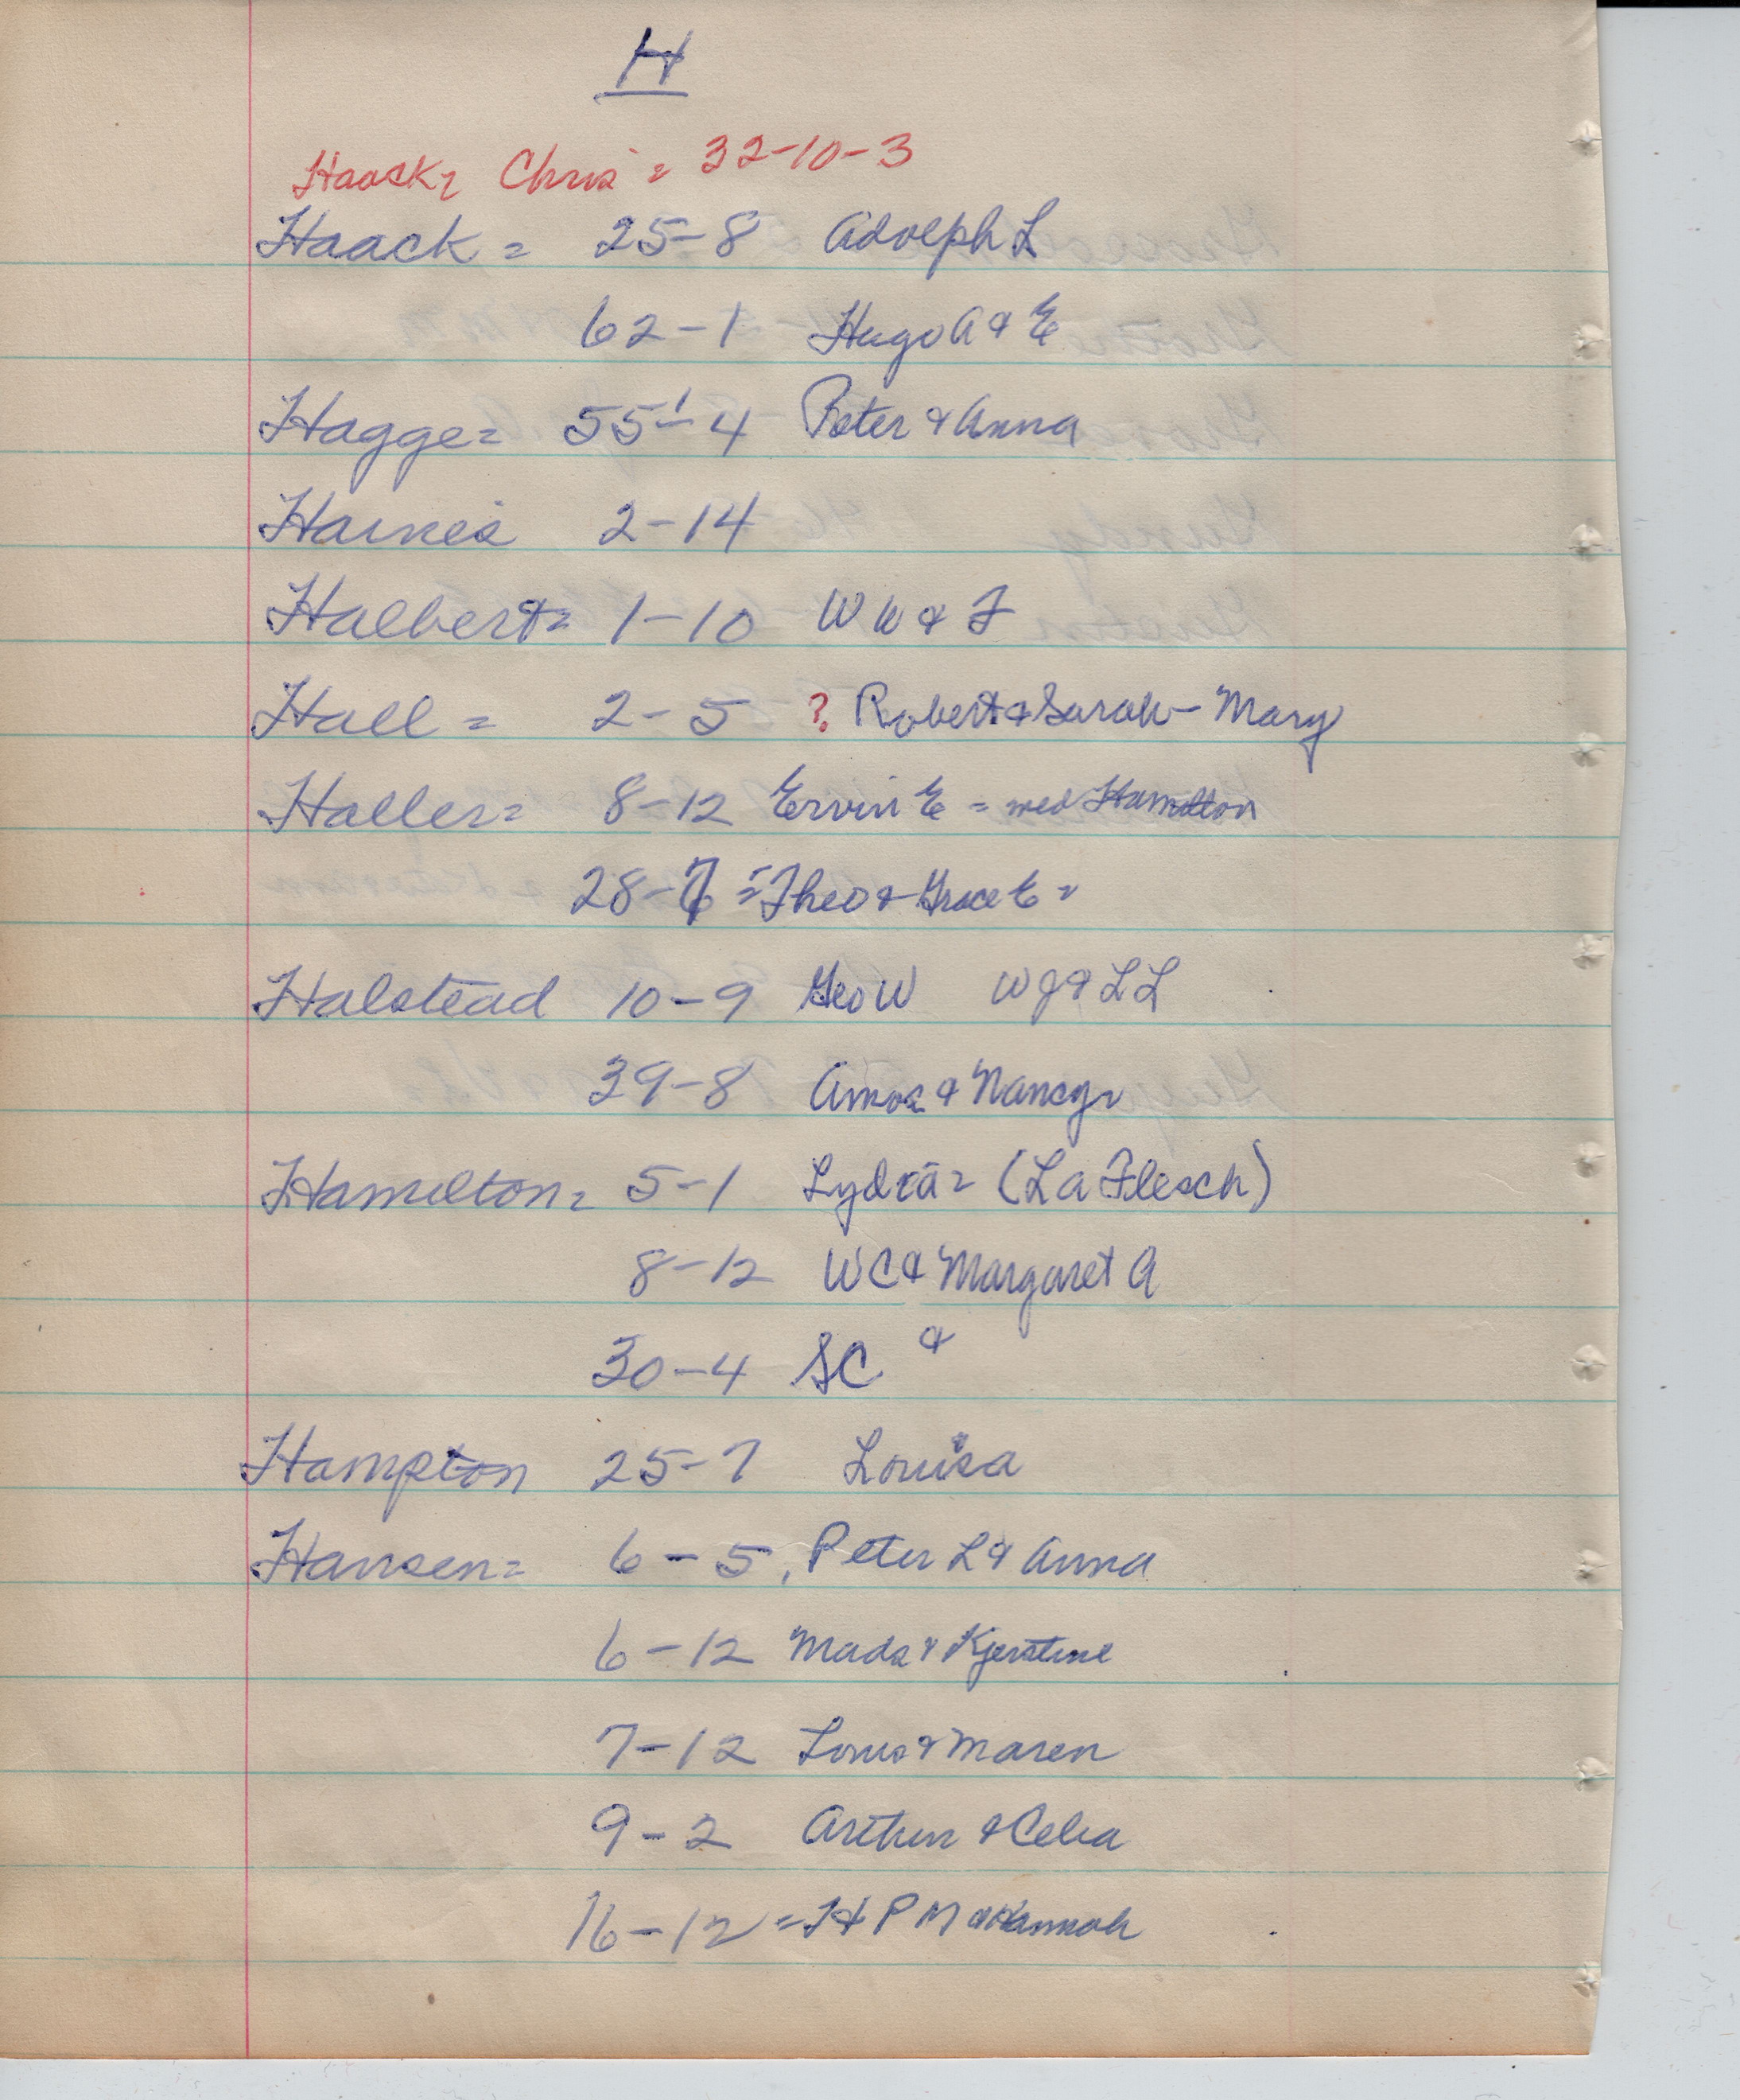 H
Haack = Chris = 32-10-3
Haack = 25-8 Adolph L
62-1 Hugo A & E
Hagge = 55-4 Peter & Anna
Haines 2-14
Halbert = 1-10 W W & F
Hall = 2-5 ? Robert & Sarah - Mary
Haller = 8-12 Ervin E = Hamilton
28- = Theo & Grace E =
Halstead 10-9 Geo W W J & L L
39-8 Amos & Nancy =
Hamilton = 5-1 Lydia = (La Flesch)
8-12 W C & Margaret A
30-4 S C &
Hampton 25-7 Louisa
Hansen = 6-5, Peter L & Anna
6-12 Mads & Kjerstine
7-12 Louis & Maren
9-2 Arthur & Celia
16-12 = H P M & Hannah